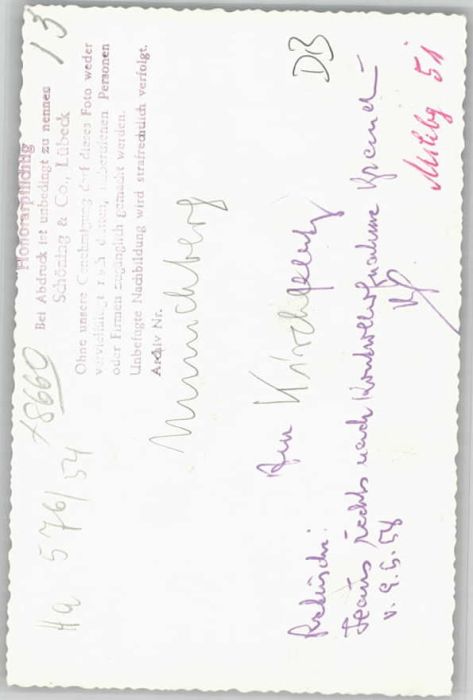 13
Honorarpflichtig
Bei Abdruck ist unbedingt zu nennen
Schöning & Co., Lübeck
Ohne unsere Genehmigung darf dieses Foto weder
vervielfältigt noch dritten Personen
oder Firmen zugänglich gemacht werden.
Unbefugte Nachbildung wird strafrechtlich verfolgt.
Archiv Nr.
+8660
Ha 576/54
Münchberg
DB
Am Kirchplatz
Retusche:
rechts nach
v. 9.6.54
51